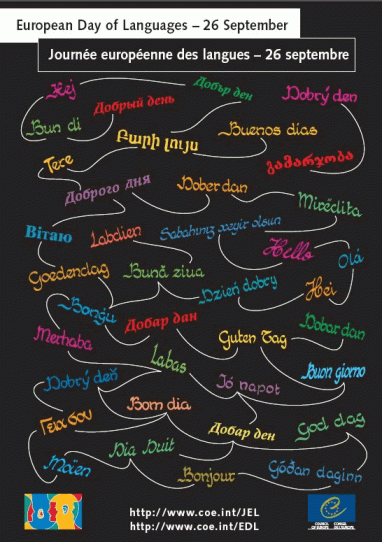 European Day of Languages – 26 September
Journée européenne des langues – 26 septembre
Hej
Добър ден
Dobrý den
Добрый день
Bun di
Բարի լույս
Buenos días
გამარჯობა
Tere
Доброго дня
Dober dan
Mirëdita
Вітаю
Labdien
Sabahınız xeyir olsun
Hello
Olá
Goedendag
Bună ziua
Dzień dobry
Hei
Bonġu
Добар дан
Dobar dan
Merhaba
Labas
Guten Tag
Buon giorno
Dobrý deň
Jó napot
Γεια σου
Bom dia
God dag
Dia Duit
Добар ден
Moïen
Bonjour
Góðan daginn
http://www.coe.int/JEL
http://www.coe.int/EDL
COUNCIL OF EUROPE
CONSEIL DE L'EUROPE